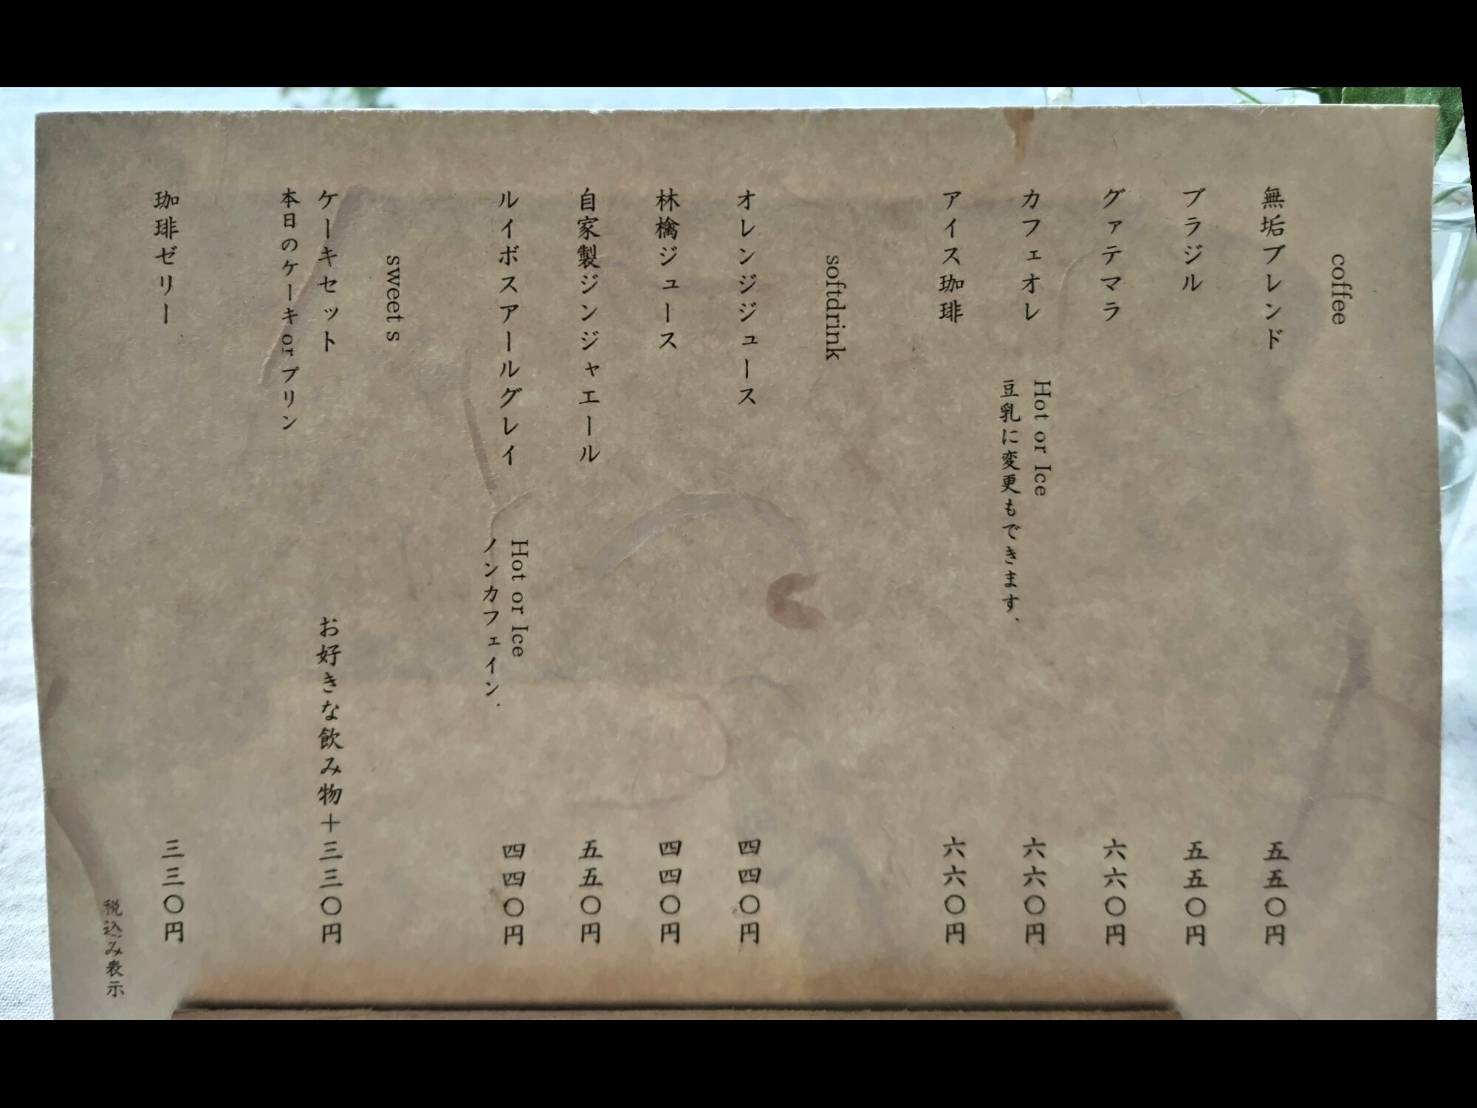 coffee
無垢ブレンド 五五〇円
ブラジル 五五〇円
グァテマラ 六六〇円
カフェオレ Hot or Ice 六六〇円
豆乳に変更もできます.
アイス珈琲 六六〇円
softdrink
オレンジジュース 四四〇円
林檎ジュース 四四〇円
自家製ジンジャエール 五五〇円
ルイボスアールグレイ Hot or Ice 四四〇円
ノンカフェイン.
sweet s
ケーキセット お好きな飲み物＋三三〇円
本日のケーキ or プリン
珈琲ゼリー 三三〇円
税込み表示